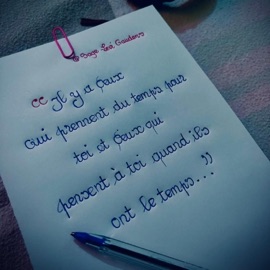 “ Il y a ceux
qui prennent du temps pour
toi et ceux qui
pensent à toi quand ils
ont le temps...”